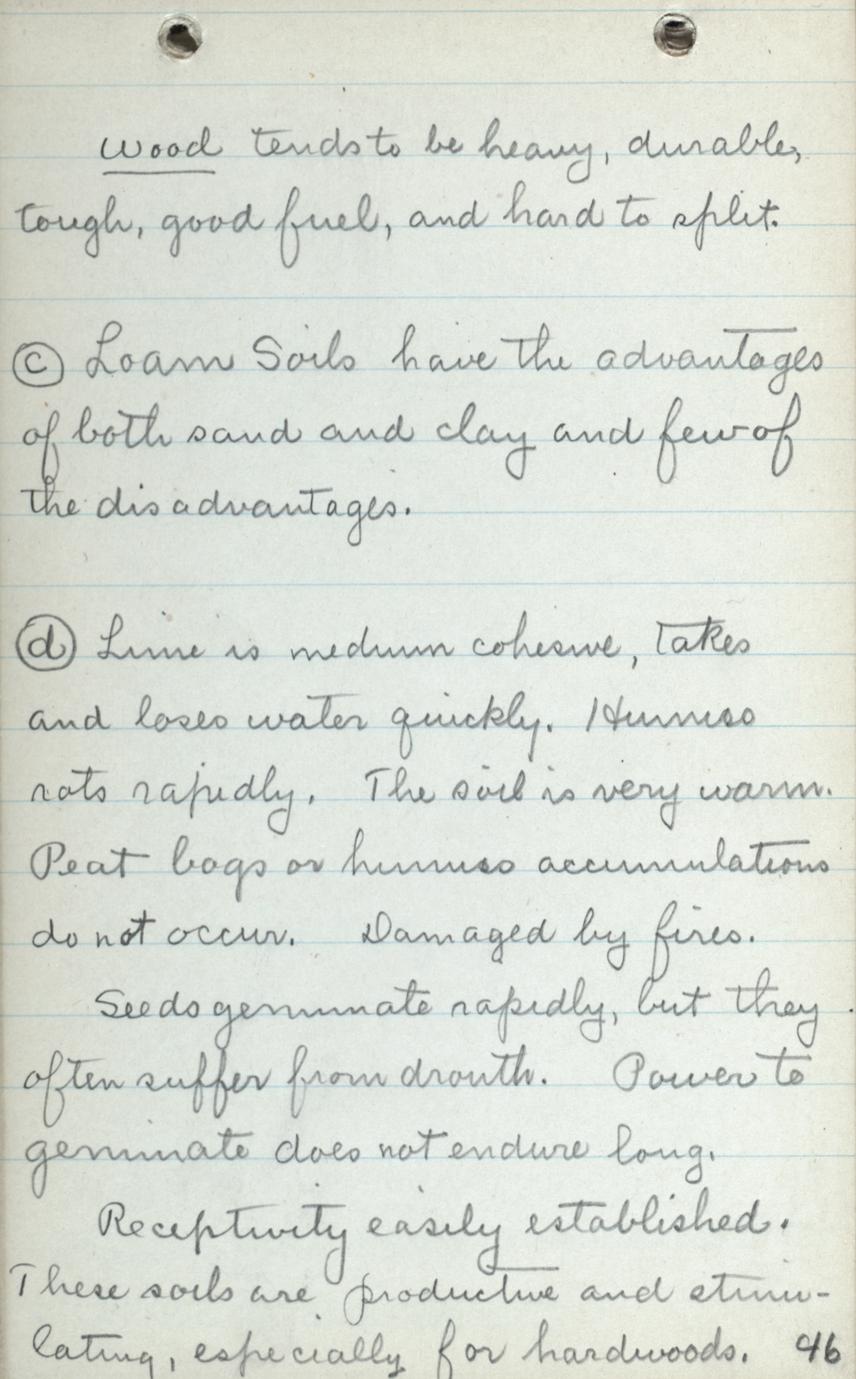 Wood tends to be heavy, durable,
tough, good fuel, and hard to split.
(c) Loam Soils have the advantages
of both sand and clay and few of
the disadvantages.
(d) Lime is medium cohesive, takes
and loses water quickly. Humus
rots rapidly. The soil is very warm.
Peat bogs or humus accumulations
do not occur. Damaged by fires.
Seeds germinate rapidly, but they
often suffer from drouth. Power to
germinate does not endure long.
Receptivity easily established.
These soils are productive and stimu-
lating, especially for hardwoods. 46